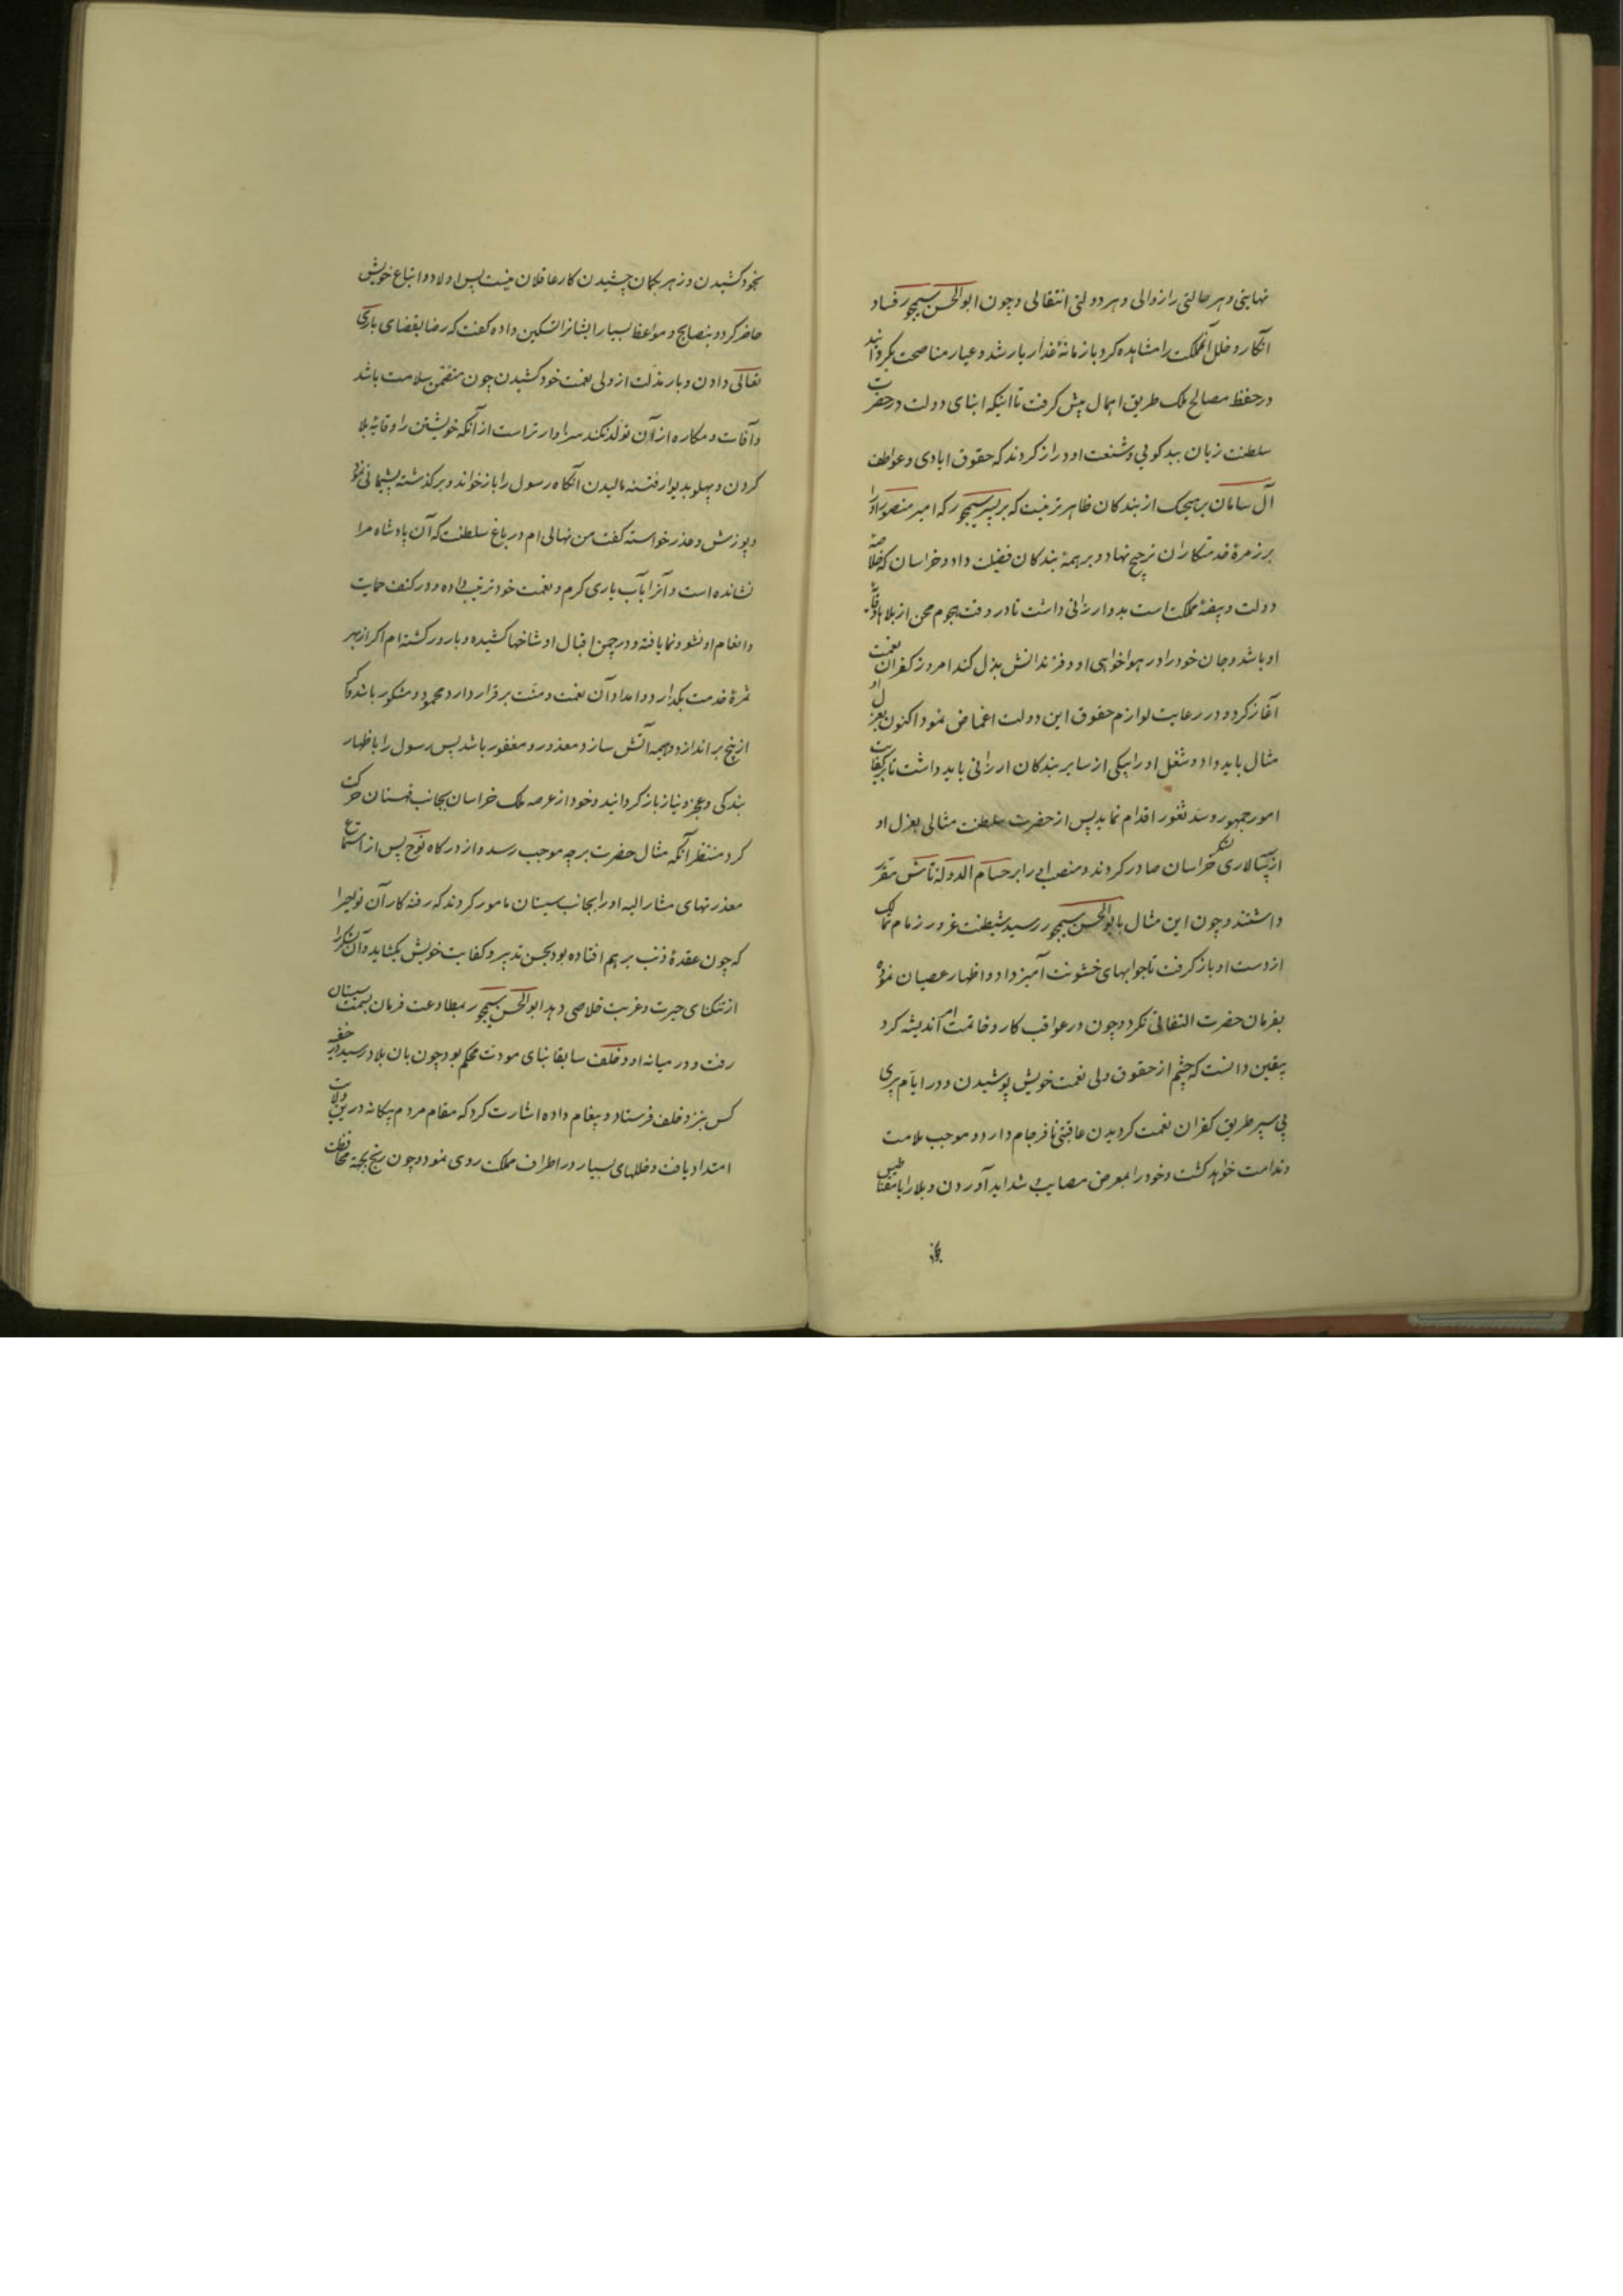 نهایتی و هر حالتی را زوالی و هر دولتی انتقالی و چون ابوالحسن سیمجور فساد
آنکار و خلل آنمملکت را مشاهده کرد با زمانهٔ غدار یار شد و عیار مناصحت بگردانید
در حفظ مصالح ملک طریق اهمال پیش گرفت تا اینکه ابنای دولت در حضرت
سلطنت زبان ببدگویی و شنعت او دراز کردند که حقوق ایادی و عواطف
آل سامان بر هیچیک از بندگان ظاهرتر نیست که بر پسر سیمجور که امیر منصور او را
بر زمرهٔ خدمتکاران ترجیح نهاد و بر همهٔ بندگان فضیلت داد و خراسان که خلاصهٔ
دولت و بیضهٔ مملکت است بدو ارزانی داشت تا در وقت هجوم محن از بلاها وقایهٔ
او باشد و جان خود را در هواخواهی او و فرزندانش بذل کند امروز کفران نعمت
آغاز کرد و در رعایت لوازم حقوق این دولت اغماض نمود اکنون بعزل او
مثال باید داد و شغل او را بیکی از سایر بندگان ارزانی باید داشت تا بکفایت
امور جمهور و سد ثغور اقدام نماید پس از حضرت سلطنت مثالی بعزل او
از سپهسالاری لشکر خراسان صادر کردند و منصب او را بر حسام الدوله تاش مقرر
داشتند و چون این مثال بابوالحسن سیمجور رسید شیطنت غرور زمام تمالک
از دست او باز گرفت تا جوابهای خشونت آمیز داد و اظهار عصیان نموده
بفرمان حضرت التفاتی نکرد و چون در عواقب کار و خاتمت امر اندیشه کرد
بیقین دانست که چشم از حقوق ولی نعمت خویش پوشیدن و در ایام پیری
پی سپر طریق کفران نعمت گردیدن عاقبتی نافرجام دارد و موجب ملامت
و ندامت خواهد گشت و خود را بمعرض مصایب و شداید آوردن و بلا را بمغناطیس
بخود
بخود کشیدن و زهر بگمان چشیدن کار عاقلان نیست پس اولاد و اتباع خویش
حاضر کرد و بنصایح و مواعظ بسیار ایشانرا تسکین داده گفت که رضا بقضای باری
تعالی دادن و بار مذلت از ولی نعمت خود کشیدن چون متضمن سلامت باشد
و آفات و مکاره از آن تولد نکند سزاوارتر است از آنکه خویشتن را وقایهٔ بلا
کردن و پهلو بدیوار فتنه مالیدن آنگاه رسول را باز خواند و بر گذشته پشیمانی نمود
و پوزش و عذر خواسته گفت من نهالی ام در باغ سلطنت که آن پادشاه مرا
نشانده است و آنرا بآب یاری کرم و نعمت خود ترتیب داده و در کنف حمایت
و انعام او نشو و نما یافته و در چمن اقبال او شاخها کشیده و بارور گشته ام اگر از بهر
ثمرهٔ خدمت بگذارد و امداد آن نعمت و منت برقرار دارد محمود و مشکور باشد و اگر
از بیخ براندازد و هیمه آتش سازد معذور و مغفور باشد پس رسول را با ظهار
بندگی و عجز و نیاز باز گردانید و خود از عرصه ملک خراسان بجانب قهستان حرکت
کرد منتظر آنکه مثال حضرت بر چه موجب رسد و از درگاه نوح پس از استماع
معذرتهای مشار الیه او را بجانب سیستان مامور کردند که رفته کار آن نواحی را
که چون عقدهٔ ذنب بر هم افتاده بود بحسن تدبیر و کفایت خویش بگشاید و آن لشکر را
از تنگنای حیرت و غربت خلاصی دهد ابوالحسن سیمجور بمطاوعت فرمان بسمت سیستان
رفت و در میانه او و خلف سابقا بنای مودت محکم بود چون بان بلاد رسید در خفیه
کس بنزد خلف فرستاد و پیغام داده اشارت کرد که مقام مردم بیگانه درین ولایت
امتداد یافت و خللهای بسیار در اطراف مملکت روی نمود و چون رنج بجهة محافظت